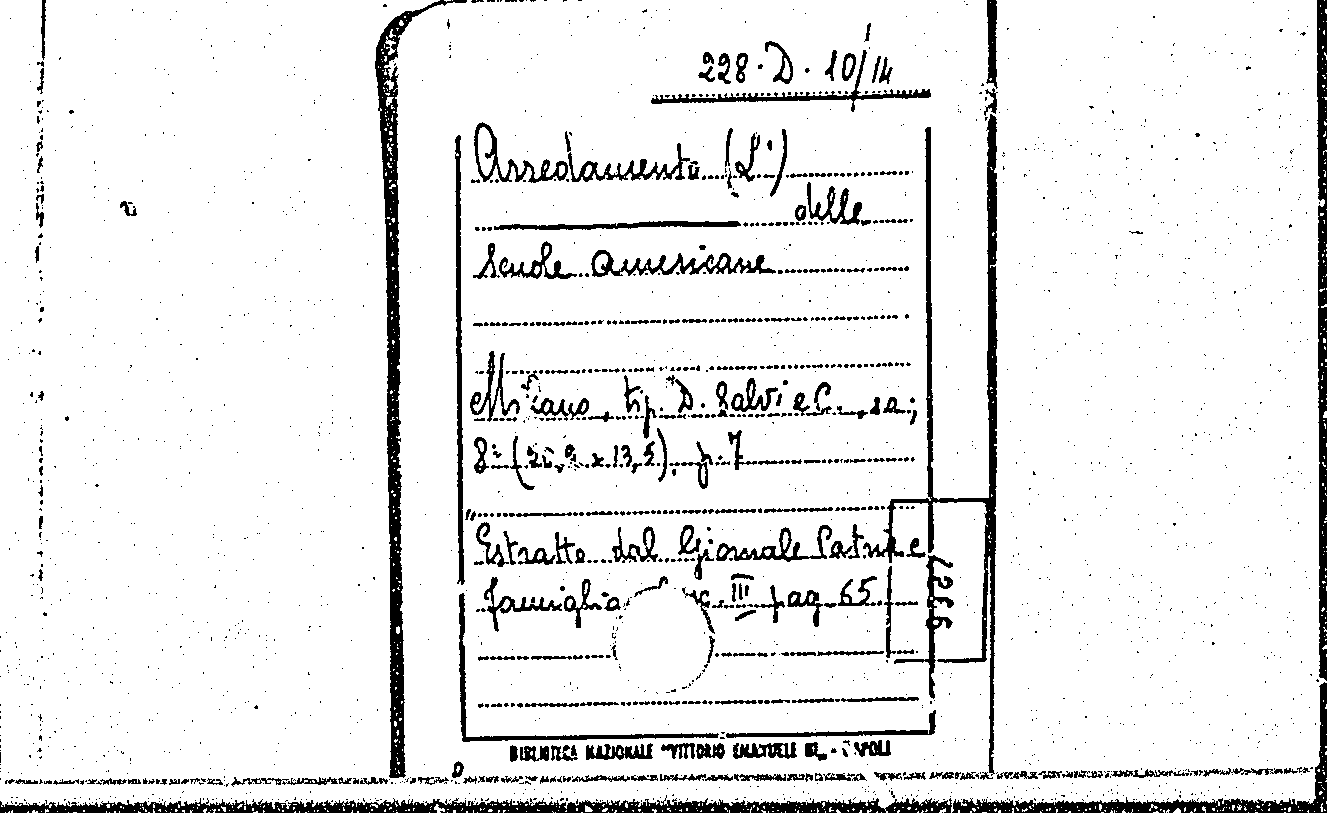 228. D. 10/14
Arredamento (L')
delle
Scuole Americane
Milano, tip. D. Salvi e C., s.a.;
8° (20,2 x 13,5), p. 7
Estratto dal Giornale Patria e
famiglia III pag. 65
BIBLIOTECA NAZIONALE "VITTORIO EMANUELE III„ - NAPOLI